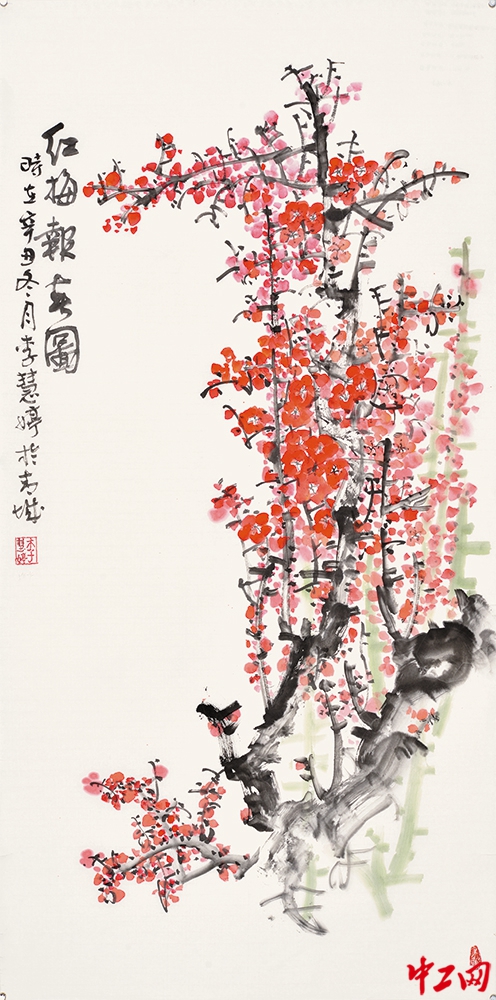 红梅報春圖
時在辛丑冬月李慧婷於青城
李慧婷
中工网